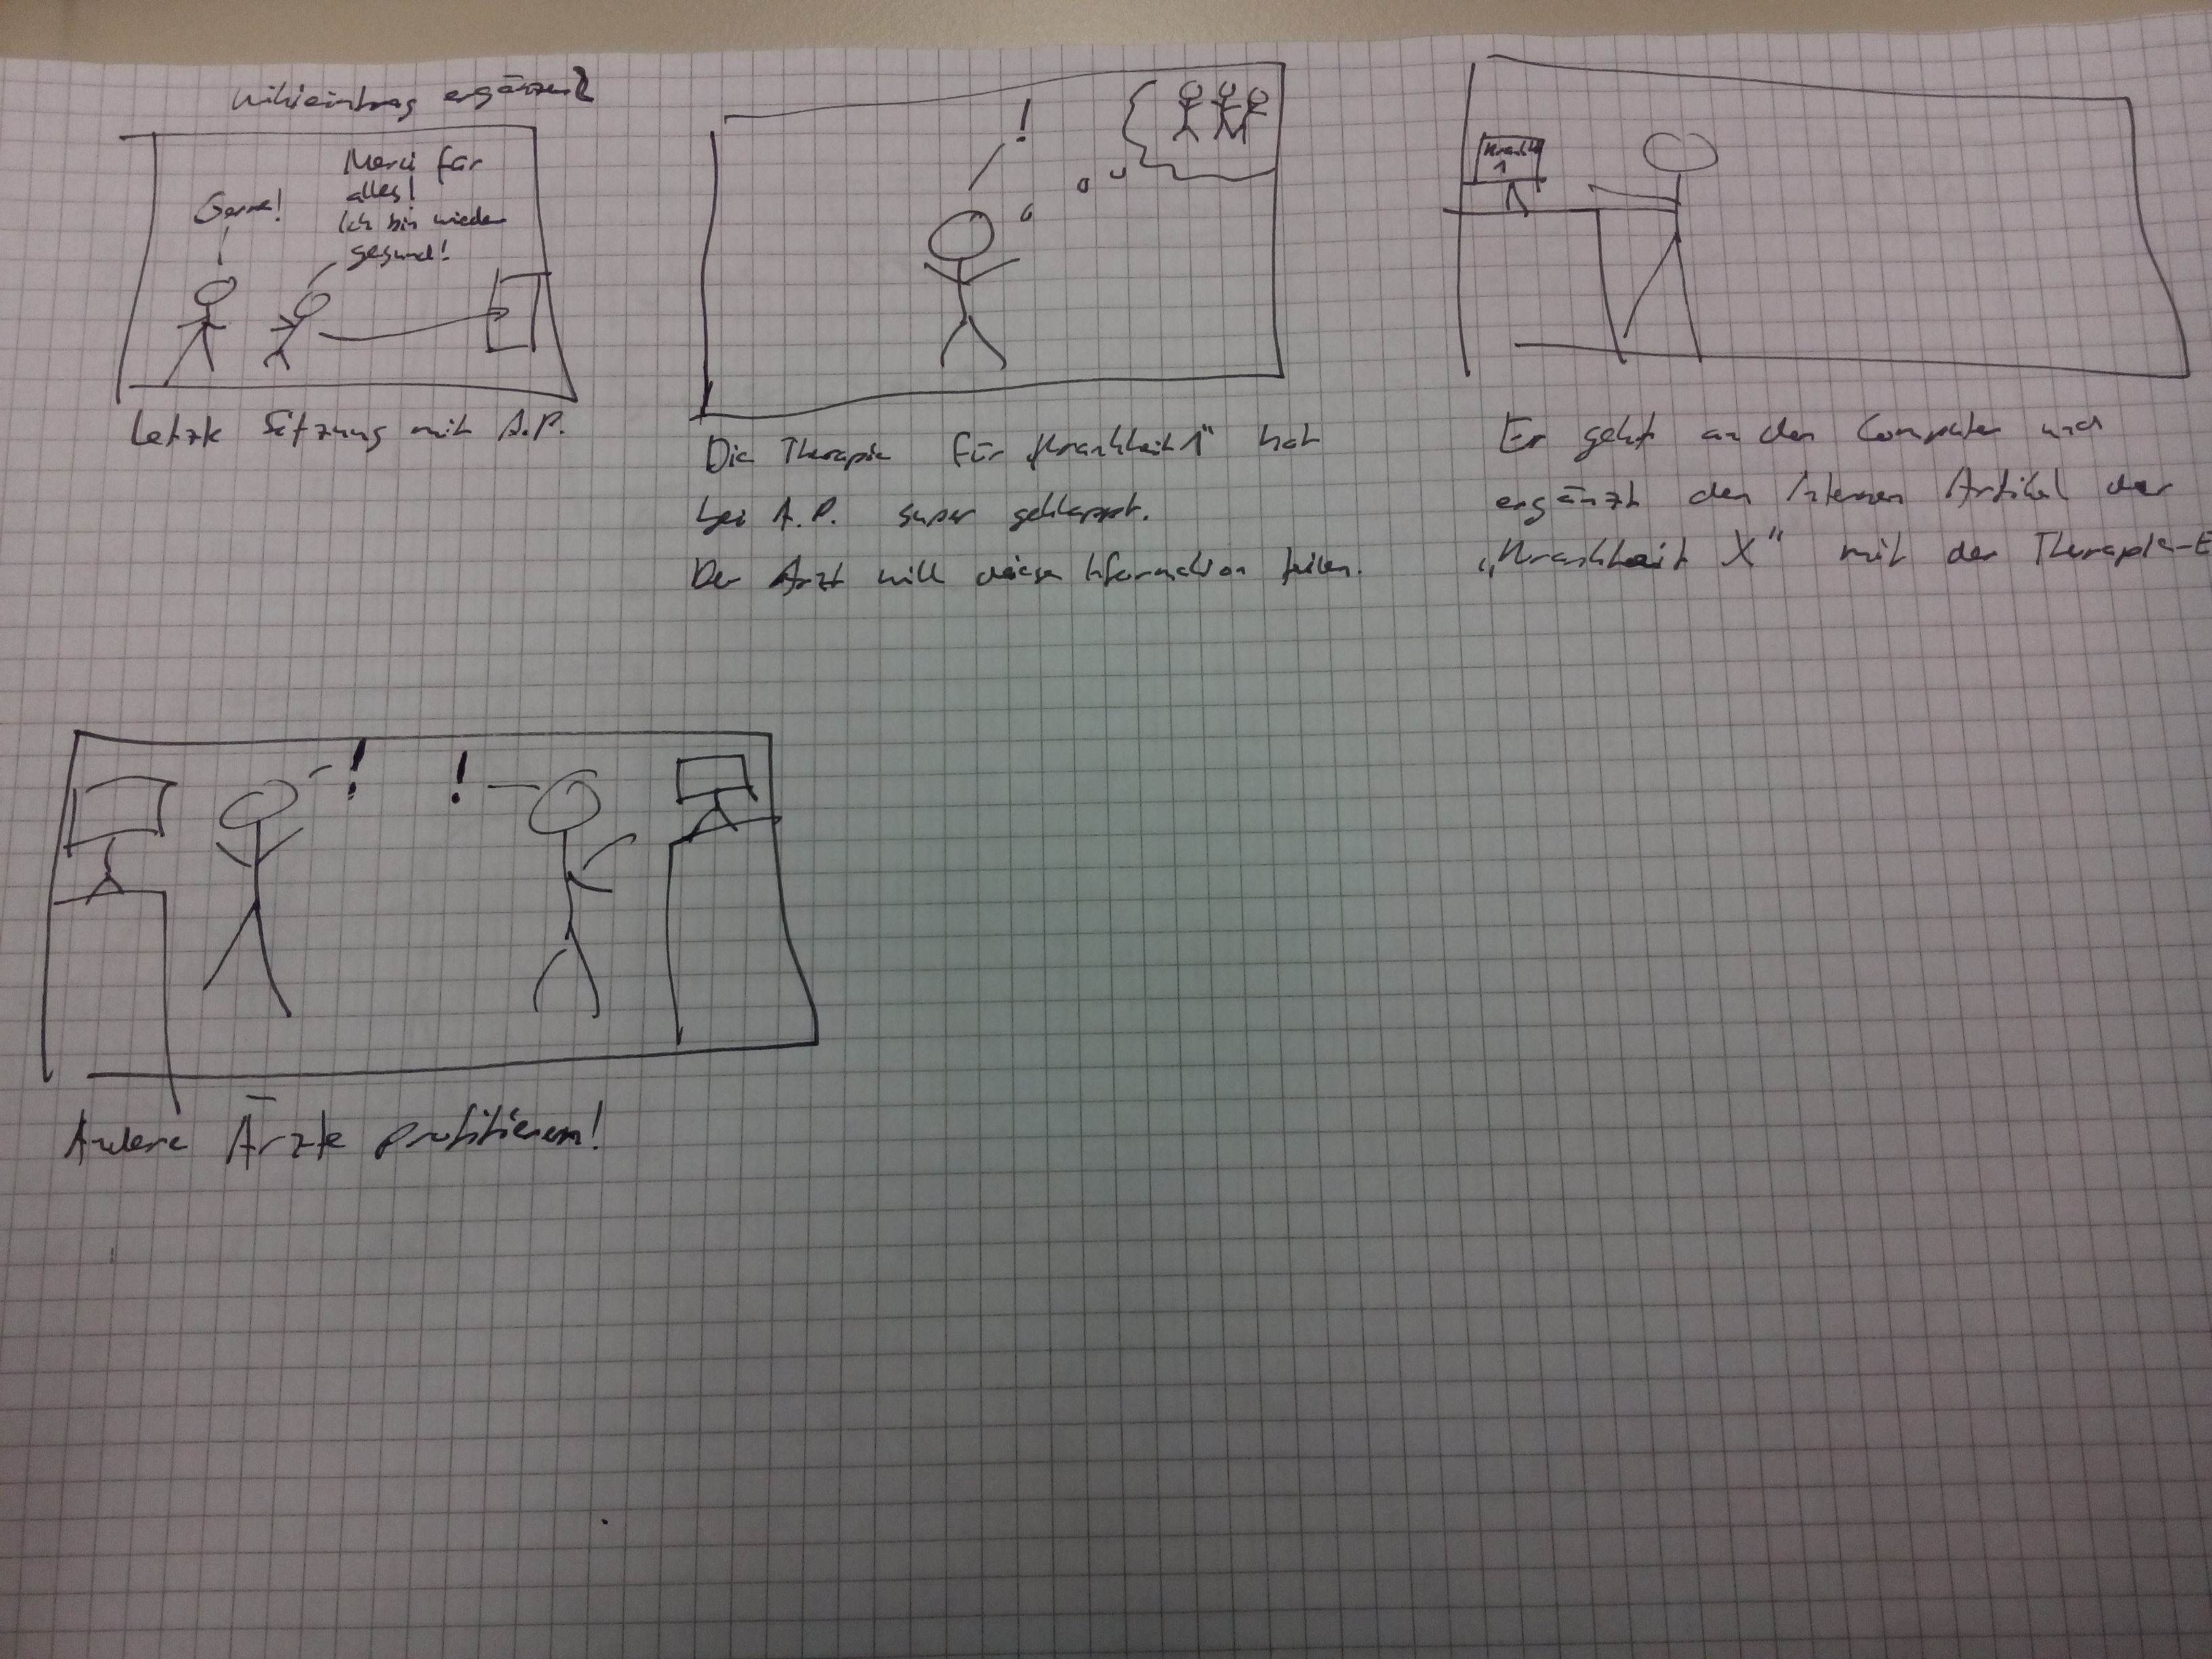 Wikieintrag ergänzen
Gerne!
Merci für
alles!
Ich bin wieder
gesund!
Letzte Sitzung mit A.P.
!
Die Therapie für „Krankheit 1" hat
bei A.P. super geklappt.
Der Arzt will diese Information teilen.
Krankheit
1
Er geht an den Computer und
ergänzt den internen Artikel der
„Krankheit X" mit der Therapie-E
! !
Andere Ärzte profitieren!